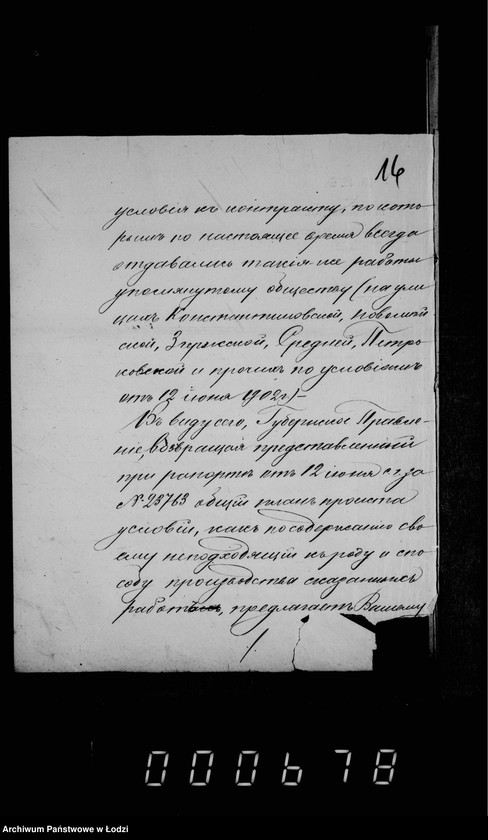 16
условія къ контракту, по кото-
рымъ по настоящее время всегда
отдавались такія-же работы
упомянутому обществу (на ули-
цахъ Константиновской, Новомей-
ской, Згержской, Средней, Петро-
ковской и прочихъ по условіямъ
отъ 12 іюня 1902 г.)-
Въ виду сего, Губернское Правле-
ніе, возвращая представленный
при рапортѣ отъ 12 іюня с/г за
№ 23763 общій планъ проекта
условій, какъ по содержанію сво-
ему неподходящій къ роду и спо-
собу производства сказанныхъ
работъ, предлагаетъ Вашему
/.
000678
Archiwum Państwowe w Łodzi